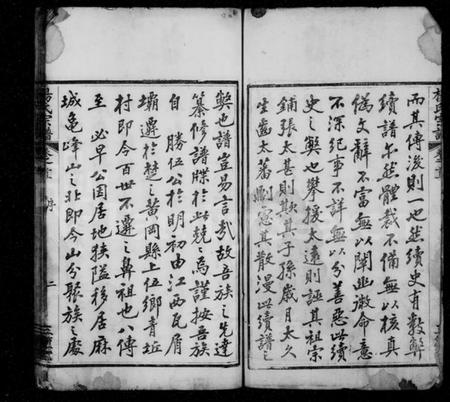 而其傳後則一也然續史有數弊
續譜亦然體裁不備無以核真
偽文辭不富無以闡幽微命意
不深紀事不詳無以分善惡此續
史之弊也攀援太遠則誣其祖宗
鋪張太甚則欺其子孫歲月太久
生齒太蕃則憲其散漫此續譜之
弊也譜豈易言哉故吾族之先達
纂修譜牒於此兢之為謹按吾族
自勝伍公於明初由江西瓦屑
壩遷於楚之黃岡縣上伍鄉青坵
村即今百世不遷之鼻祖也八傳
至必早公因居地狹隘移居麻
城龜峰山之北即今山分聚族之處
楊氏宗譜
序
二